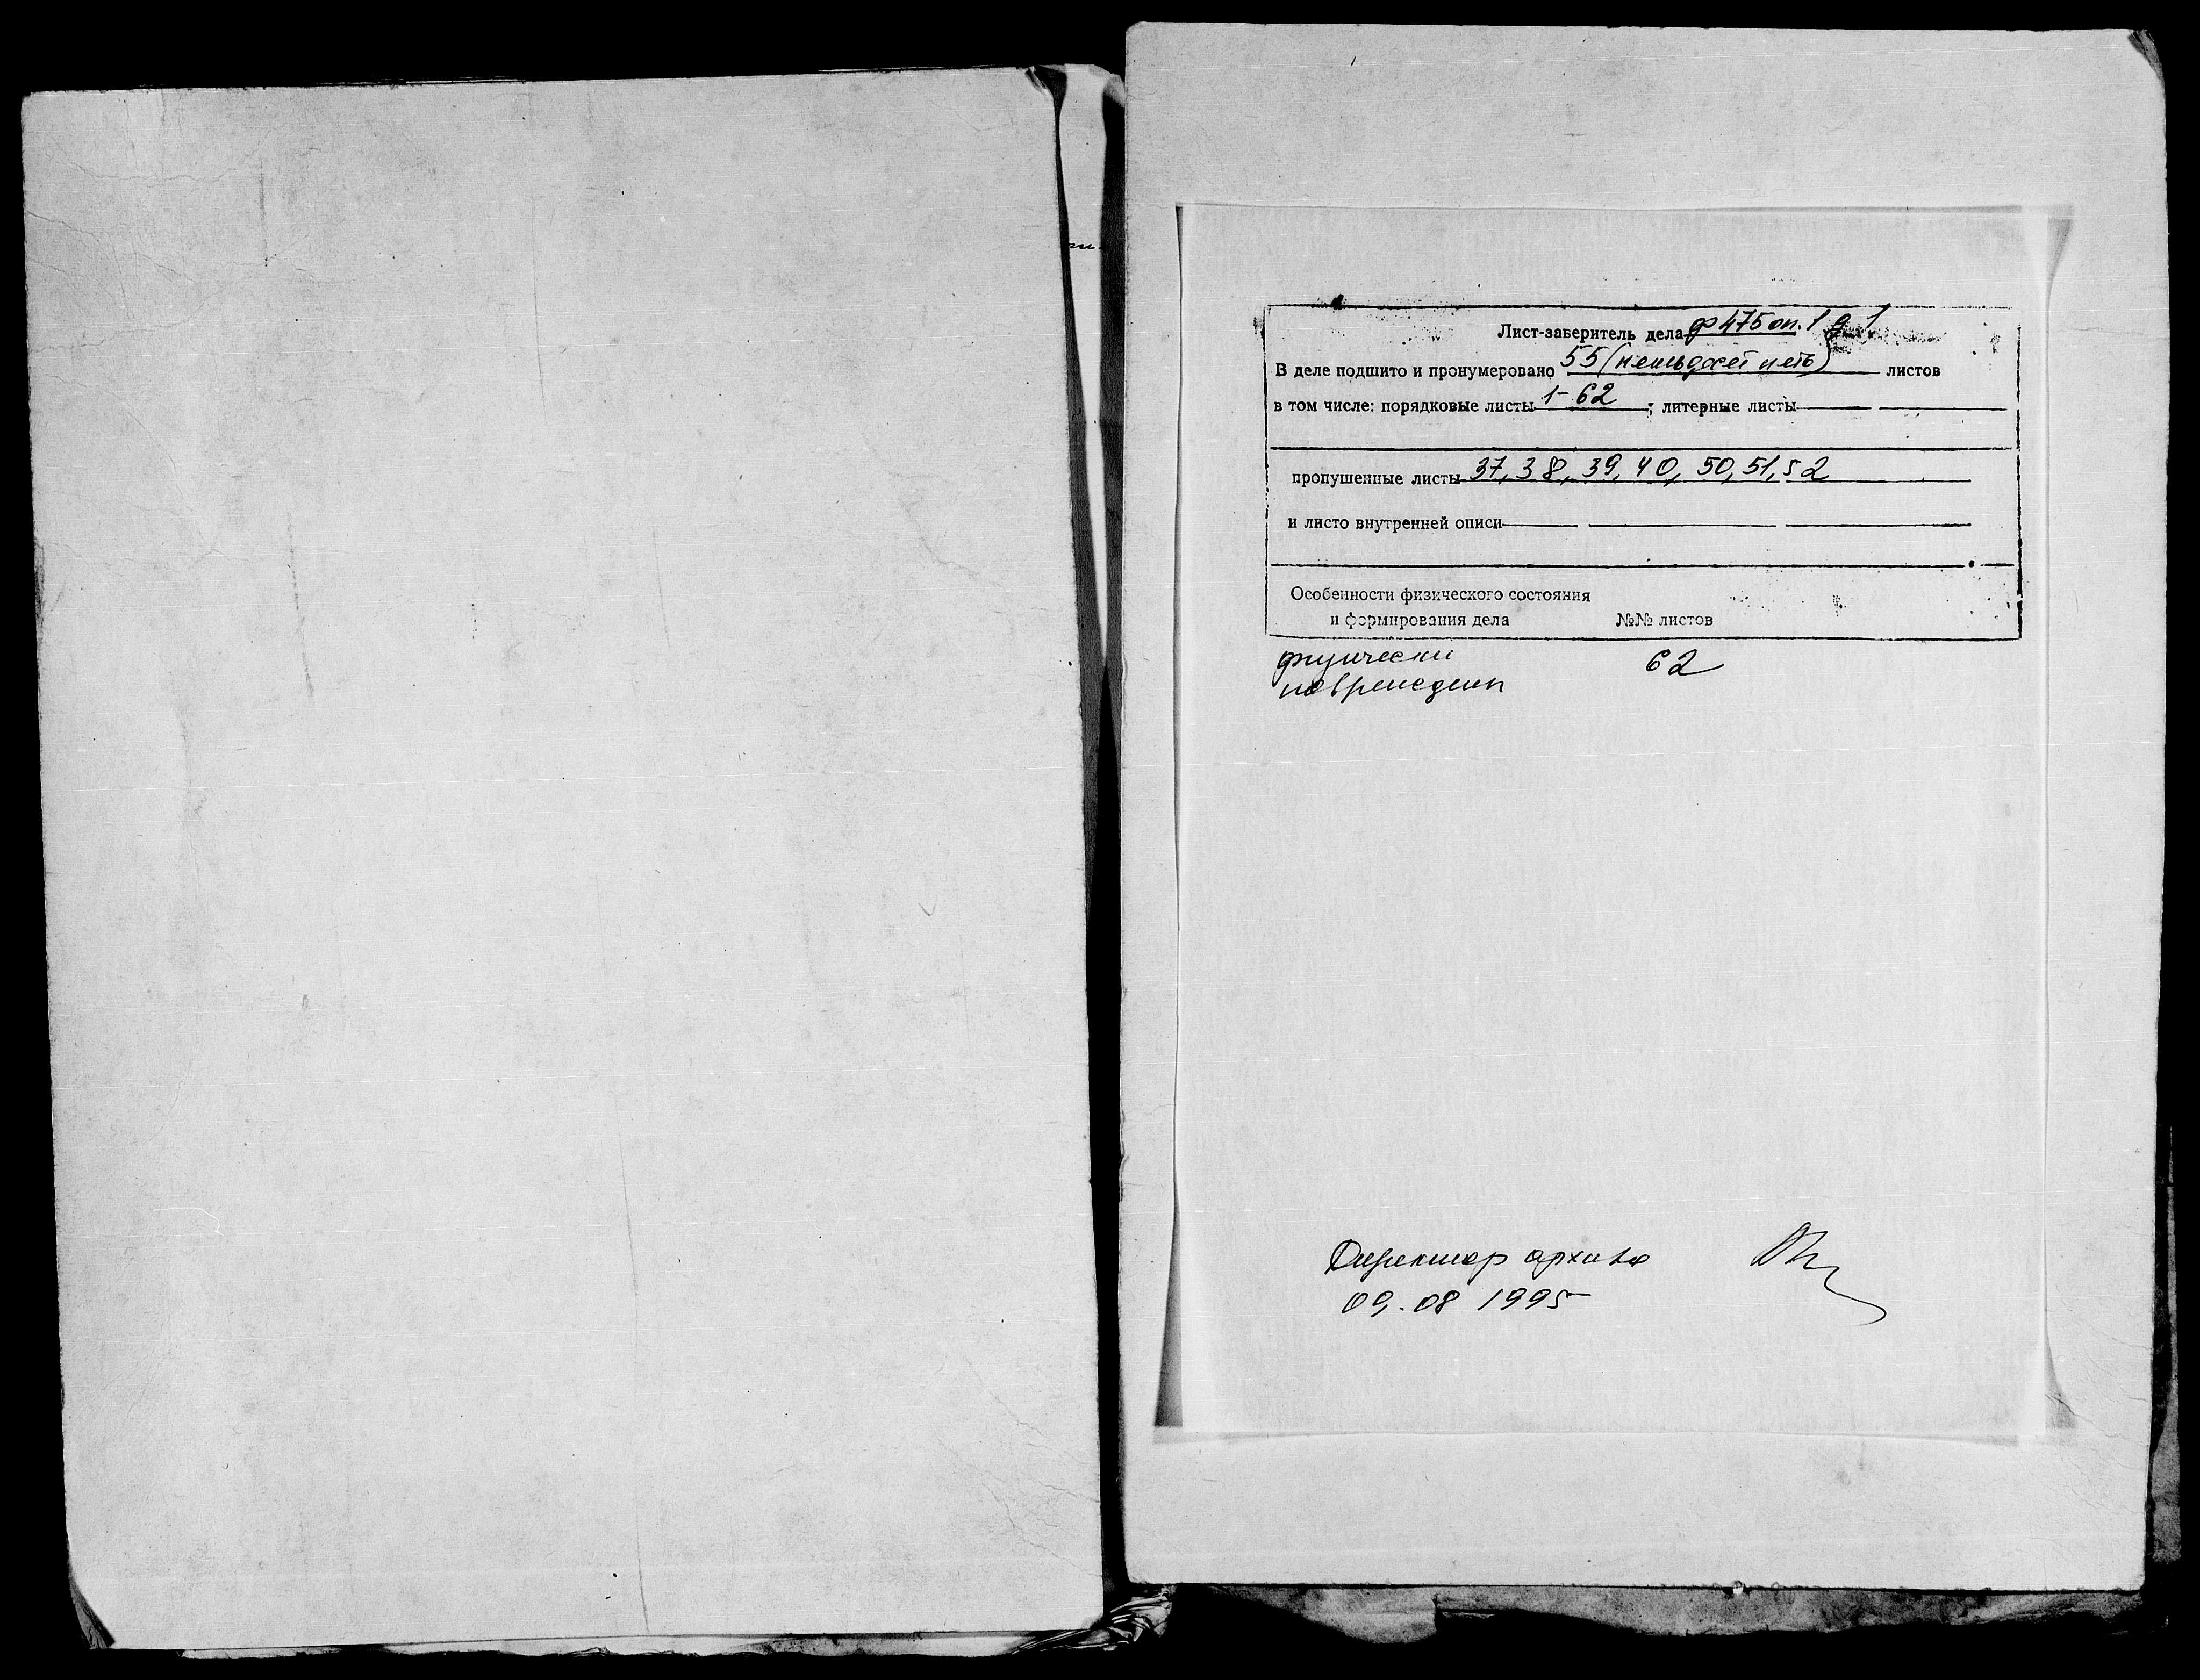 Лист-заберитель дела ф 475 оп. 1 д 1
В деле подшито и пронумеровано 55 (пятьдесят пять) листов
в том числе: порядковые листы 1-62 ; литерные листы
пропушенные листы 37, 38, 39, 40, 50, 51, 52
и листо внутренней описи
Особенности физического состояния
и формирования дела №№ листов
физически 62
поврежден
Директор архива
09.08 1995